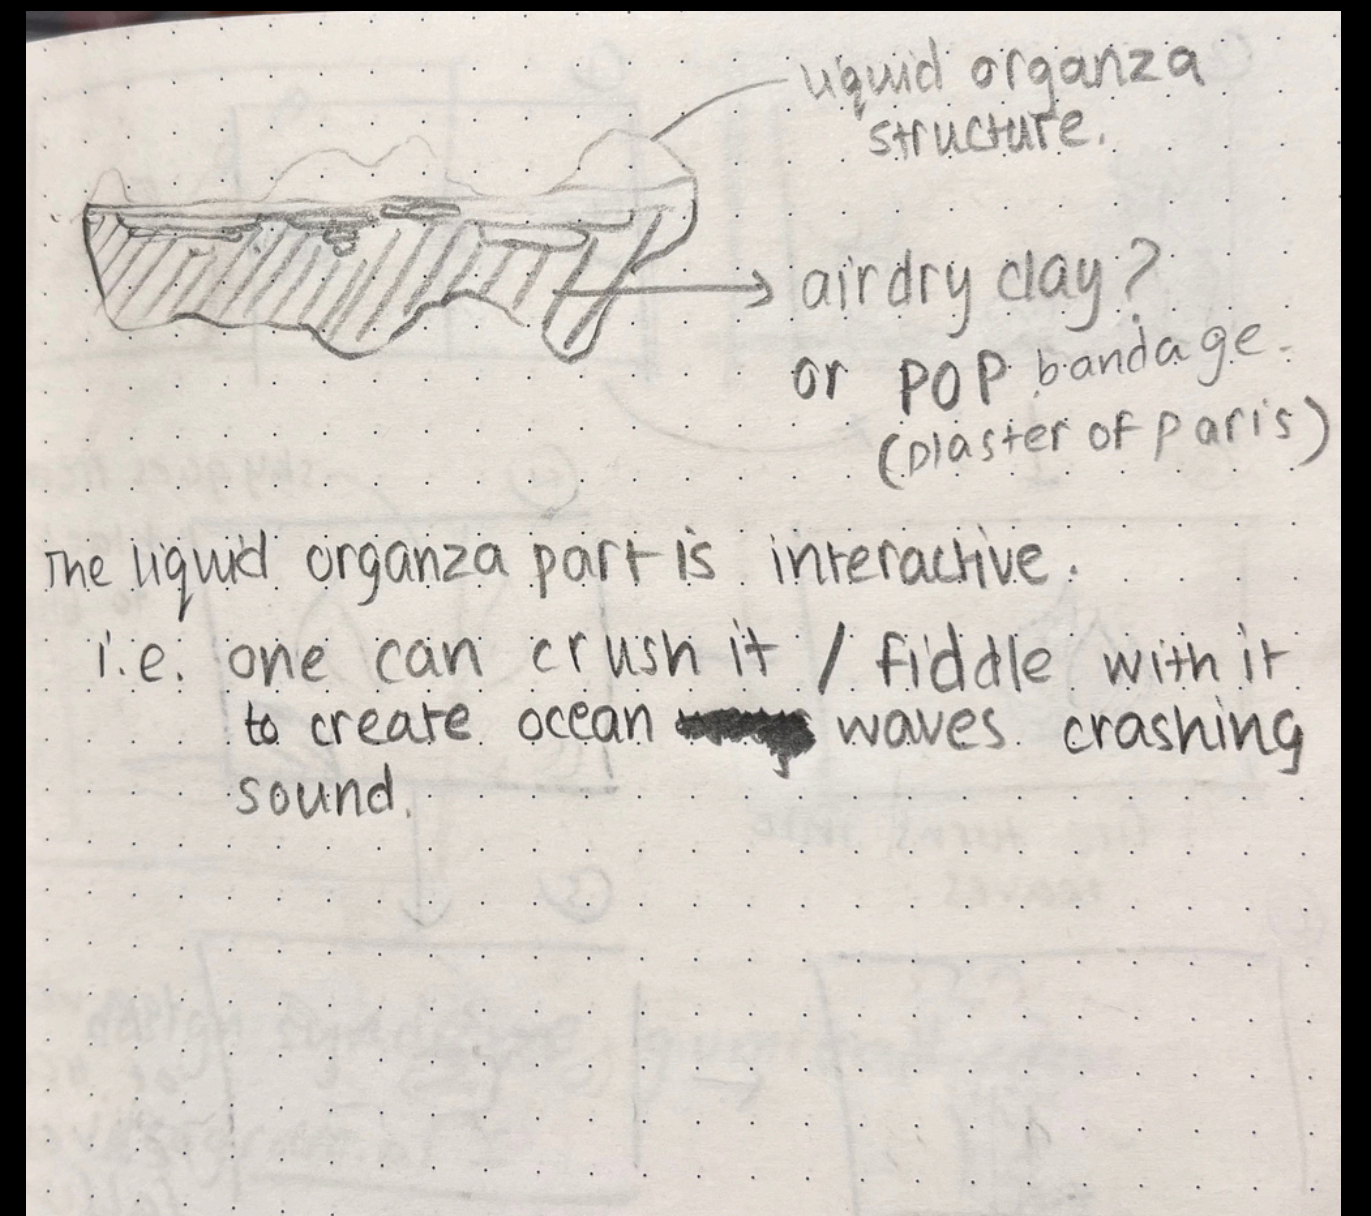 liquid organza
structure.
airdry clay?
or POP bandage.
(plaster of paris)
The liquid organza part is interactive.
i.e. one can crush it / fiddle with it
to create ocean waves crashing
sound.